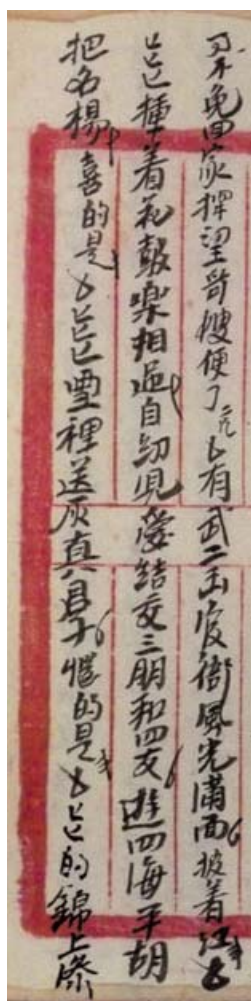 不免回家探望哥嫂便了有武二出官衙風光滿面披着红
插着花鼓樂相迎自幼児愛結交三朋和四友遊四海平胡
把名揚喜的是雪裡送灰真君子惱的是的錦上添